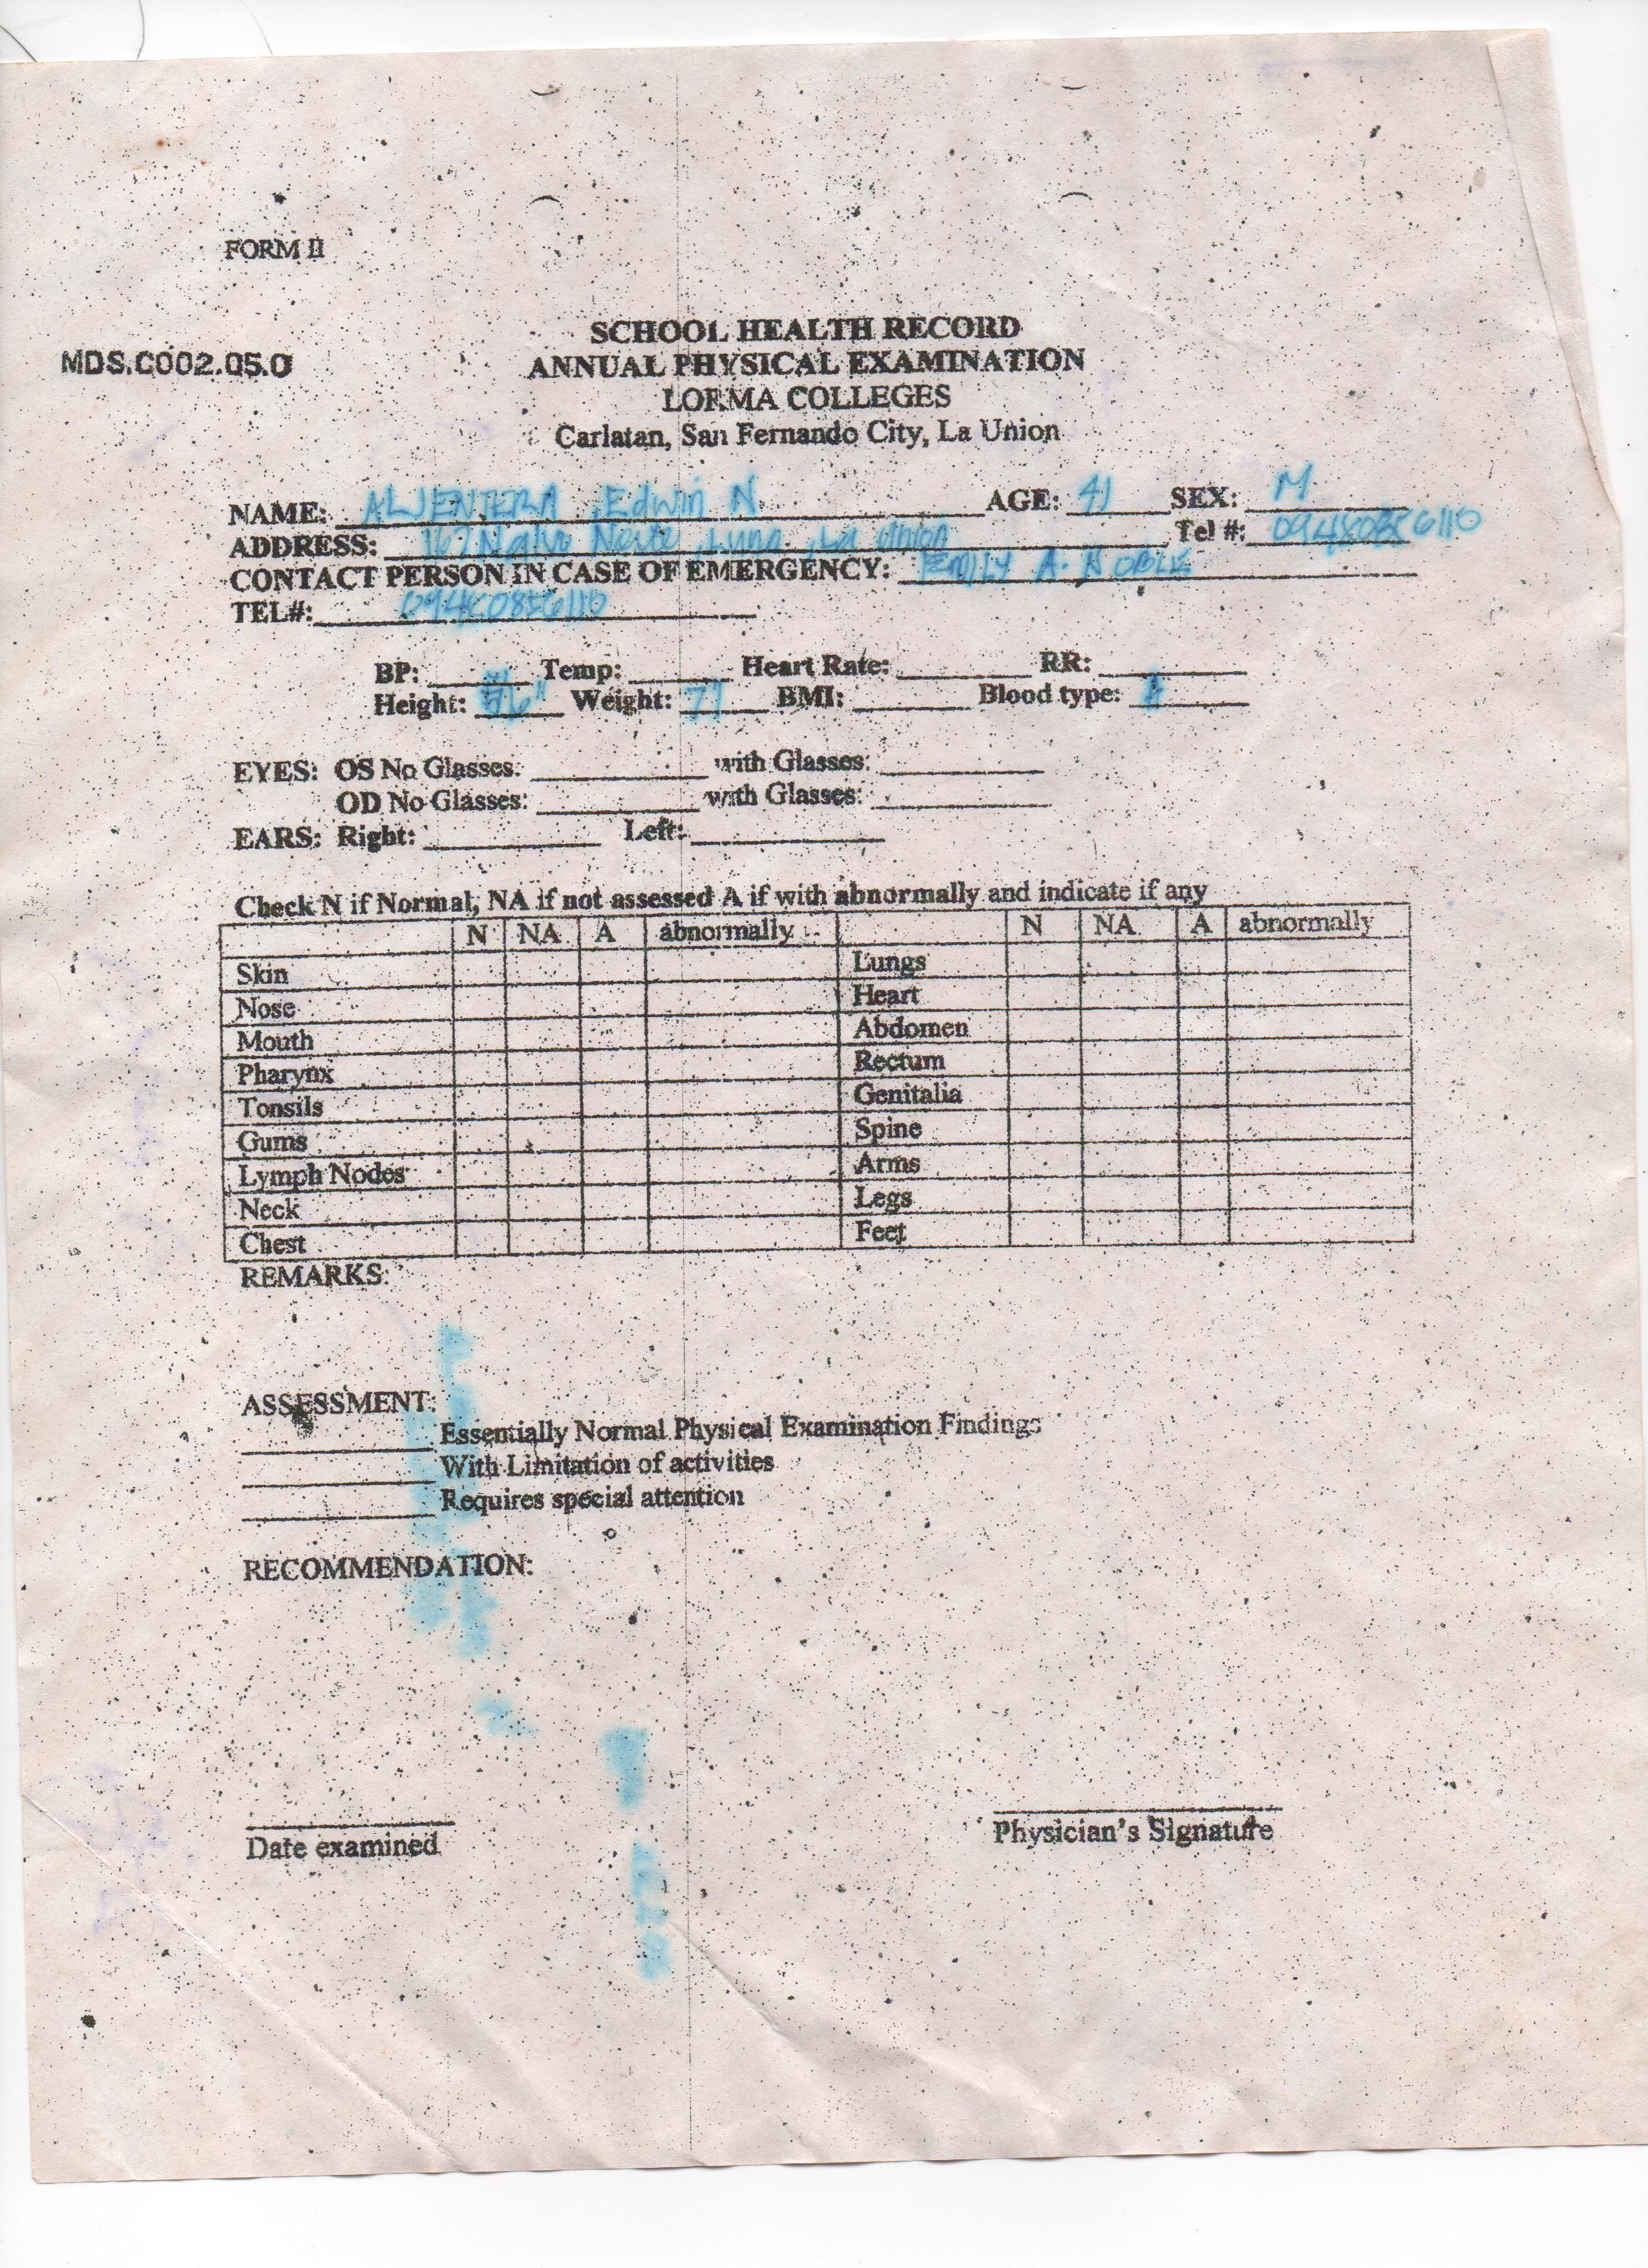 FORM II
SCHOOL HEALTH RECORD
MDS.C002.05.0
ANNUAL PHYSICAL EXAMINATION
LORMA COLLEGES
Carlatan, San Fernando City, La Union
NAME: Edwin N AGE: 41 SEX: M
ADDRESS: Luna, La Union Tel #:
CONTACT PERSON IN CASE OF EMERGENCY: EMILY A. NOBLE
TEL#:
BP: Temp: Heart Rate: RR:
Height: Weight: 77 BMI: Blood type:
EYES: OS No Glasses: with Glasses:
OD No Glasses: with Glasses:
EARS: Right: Left:
Check N if Normal, NA if not assessed A if with abnormally and indicate if any
N NA A abnormally N NA A abnormally
Skin Lungs
Nose Heart
Mouth Abdomen
Pharynx Rectum
Tonsils Genitalia
Gums Spine
Lymph Nodes Arms
Neck Legs
Chest Feet
REMARKS:
ASSESSMENT:
Essentially Normal Physical Examination Findings
With Limitation of activities
Requires special attention
RECOMMENDATION:
Date examined Physician's Signature